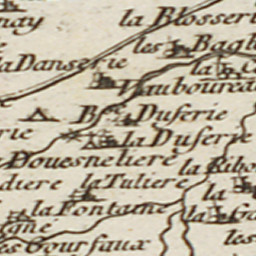 la Blosseri
nay
les Bagl
la Danserie
la
Vauboureau
B. Duferie
rie
la Duferie
Douesneliere
la Ribo
diere la Tuliere
la
la Fontaine
la Ga
igne
les Gourfaux
les